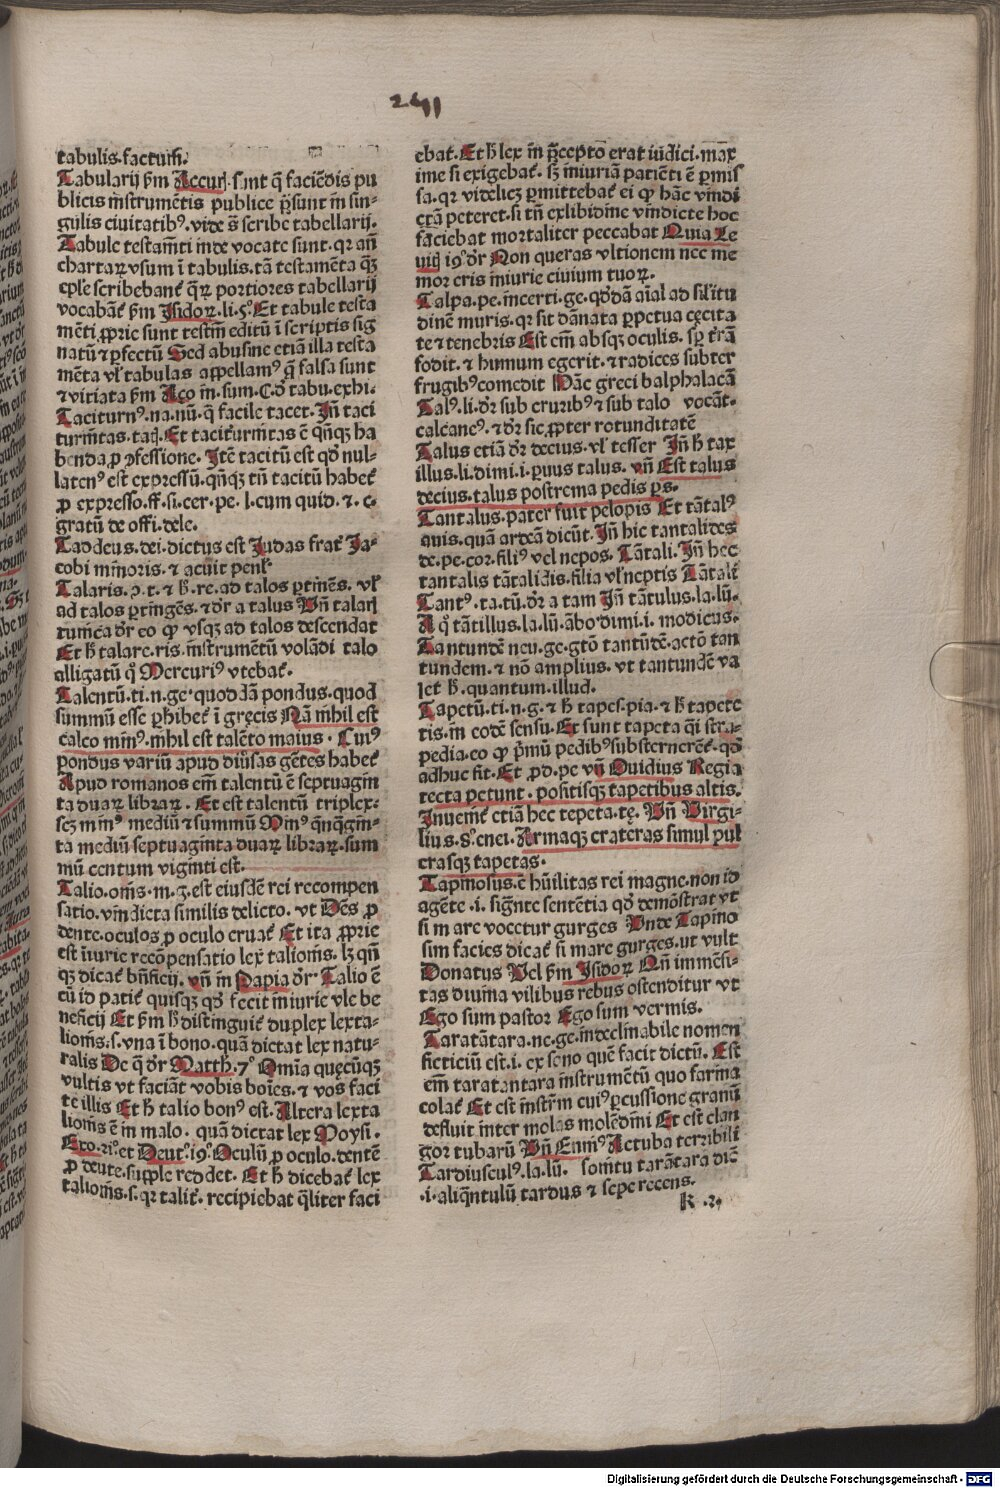 241
tabulis.factum.
Tabularij ẜm Accurſ.ſunt q̄ faciēdis pu
blicis inſtrumētis publice p̄ſunt in ſin-
gulis ciuitatibꝰ.vide s̄ ſcribe tabellarij.
Tabule teſtam̄ti inde vocate ſunt.qr an̄
chartaꝝ vſum ī tabulis.tā teſtamēta qꝫ
ep̄le ſcribebanť qꝝ portiores tabellarij
vocabāť ẜm Iſidoꝝ.li.5.° Et tabule teſta
mēti ꝓprie ſunt teſtm̄ editū ī ſcriptis ſig
natū ⁊ ꝑfectū Sed abuſiue etiā illa teſta
mēta vł tabulas appellamꝰ q̄ falſa ſunt
⁊ vitiata ẜm Aço in.ſum.C.ď tabu.exhi.
Taciturnꝰ.na.nū.q̄ facile tacet.In̄ taci
turnitas.taď.Et taciturnitas ē qn̄qꝫ ha
benda.ꝓ ꝯfeſſione.Itē tacitū eſt qď nul-
latenꝰ eſt expreſſū.qn̄qꝫ tn̄ tacitū habeť
ꝓ expreſſo.ff.ſi.cer.pe.l.cum quid.⁊.c.
gratū de offi.dele.
Taddeus.dei.dictus eſt Iudas frať Ja-
cobi minoris.⁊ acuit penł
Talaris.ꝯ.t.⁊ ħ.re.ad talos ꝑtinēs.vł
ad talos ꝑtingēs.⁊ dr̄ a talus Vn̄ talarſ
tunica dr̄ eo ꝙ vſqꝫ ad talos deſcendat
Et ħ talare.ris.inſtrumētū volādi talo
alligatū qͦ Mercuriꝰ vtebať.
Talentū.ti.n.ge.quoddā pondus.quod
ſummū eſſe ꝑhibeť ī gręcis Nā nihil eſt
calco minꝰ.nihil eſt talēto maius. Cuiꝰ
pondus variū apud diūſas gētes habeť
Apud romanos em̄ talentū ē ſeptuagin
ta duaꝝ libraꝝ. Et eſt talentū triplex:
ſcꝫ minꝰ mediū ⁊ ſummū Minꝰ qn̄qgin-
ta mediū ſeptuaginta duaꝝ libraꝝ.ſum
mū centum viginti eſt.
Talio.onis.m.g.eſt eiuſdē rei recompen
ſatio.vindicta ſimilis delicto.vt Dēs ꝓ
dente.oculos ꝓ oculo eruať Et ita ꝓprie
eſt iniurie recōpenſatio lex talionis.lꝫ qn̄
qꝫ dicať bn̄ficij.vn̄ in Papia dr̄.Talio ē
cū id patiť quiſqꝫ qď fecit iniurie vle be
neficij Et ẜm ħ diſtinguiť duplex lex ta-
lionis.ſ.vna ī bono.quā dictat lex natu-
ralis De q̄ dr̄ Matth.7.° Omīa quęcūqꝫ
vultis vt faciāt vobis hoīes.⁊ vos faci
te illis Et ħ talio bonꝰ eſt.Altera lex ta
lionis ē in malo. quā dictat lex Moyſi.
Exo.21.° et Deuť.19.° Oculū ꝓ oculo.dentē
ꝓ dente.ſupple reddet. Et ħ dicebať lex
talionis.ſ.qr taliť.recipiebat q̄liter faci
ebat.Et ħ lex in p̄cepto erat iudici.max
ime ſi exigebať. ſꝫ iniuriā patiēti ē ꝑmiſ
ſa.qr videlicꝫ ꝑmittebať ei ꝙ hāc vindi
ctā peteret.ſi tn̄ ex libidine vindicte hoc
faciebat mortaliter peccabat Quia Le
uitj 19.° dr̄ Non queras vltionem nec me
mor eris iniurie ciuium tuoꝝ.
Talpa.pe.incerti.ge.qďdā aīal ad ſiľitu
dinē muris.qr ſit dānata ꝑpetua cęcita
te ⁊ tenebris Eſt em̄ abſqꝫ oculis.ſꝑ trā
fodit.⁊ humum egerit.⁊ radices ſubter
frugibꝰ comedit Hāc greci balphalacā
Talꝰ.li.dr̄ ſub cruribꝰ ⁊ ſub talo vocāt.
calcaneꝰ.⁊ dr̄ ſic ꝓpter rotunditatē
Talus etiā dr̄ decius.vł teſſer In̄ ħ tax
illus.li.dimi.i.ꝑuus talus. vn̄ Eſt talus
decius.talus poſtrema pedis ꝑs.
Tantalus.pater fuit pelopis Et tātalꝰ
auis.quā ardeā dicūt.In̄ hic tantalides
de.pe.cor.filiꝰ vel nepos. Tātali.In̄ hec
tantalis tātalidis.filia vł neptis Tātali
Tantꝰ.ta.tū.dr̄ a tam In̄ tātulus.la.lū.
A qͦ tātillus.la.lū.ābo dimi.i. modicus.
Tantundē neu.ge.gtō tantūdē.actō tan
tundem.⁊ nō amplius. vt tantundē va
let ħ.quantum.illud.
Tapetū.ti.n.g.⁊ ħ tapes.pia.⁊ ħ tapete
tis.in eodē ſenſu.Et ſunt tapeta qſi ſtra-
pedia.eo ꝙ p̄mū pedibꝰ ſubſternerēť.qď
adhuc fit.Et ꝓd.pe vn̄ Ouidius Regia
tecta petunt.poſitiſqꝫ tapetibus altis.
Inueniť etiā hec tepeta.tę. Vn̄ Virgi-
lius.8.° enei.Armaqꝫ crateras ſimul pul
craſqꝫ tapetas.
Tapinoſus.ē hūilitas rei magne.non id
agēte.i. ſignte ſentētia qď demōſtrat vt
ſi mare vocetur gurges Vnde Tapino
ſim facies dicať ſi mare gurges.ut vult
Donatus Vel ẜm Iſidoꝝ Qn̄ immēſi-
tas diuina vilibus rebus oſtenditur vt
Ego ſum paſtor Ego ſum vermis.
Taratātara.ne.ge.indeclinabile nomen
ficticiū eſt.i. ex ſono quē facit dictū. Eſt
em̄ taratantara inſtrumētū quo farina
colať Et eſt inſtrm̄ cuiꝰ ꝑcuſſione granū
defluit inter molas molēdini Et eſt clan
gor tubarū Vn̄ Enniꝰ At tuba terribili
Tardiuſculꝰ.la.lū. ſonitu taratātara dic̄
.i.aliq̄ntulū tardus ⁊ ſepe recens.
k .2.
Digitalisierung gefördert durch die Deutsche Forschungsgemeinschaft - DFG